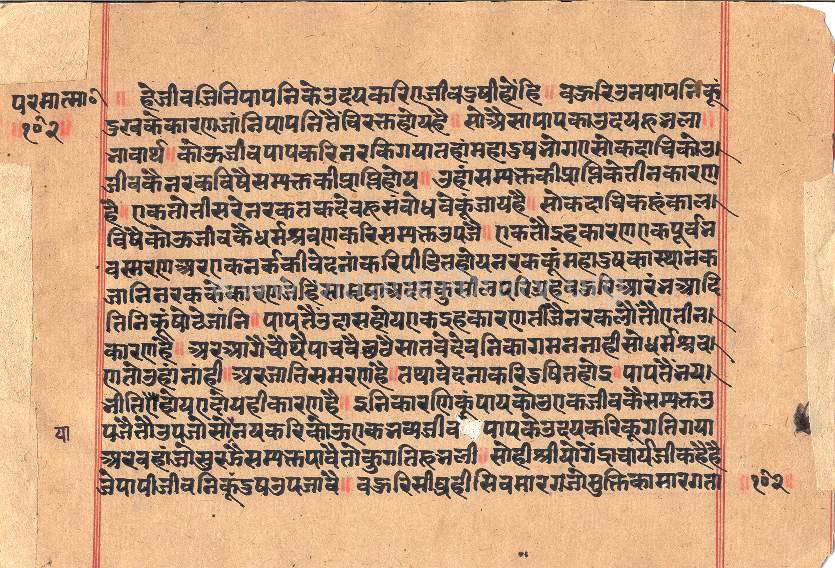 परमात्मा॰
॥१०२॥
हेजीव जिनि पापनिके उदय करि ए जीव दुषी होंहि ॥ बऊरि उन पापनिकूं
दुखके कारण जांनि पापनितैं विरक्त होय है ॥ सो अैसा पापका उदयहू भला ॥
भावार्थ ॥ कोऊ जीव पाप करि नरकि गया तहां महा दुष भोगए सो कदाचि कोउ
जीवकै नरकविषै सम्यक्तकी प्राप्ति होय ॥ उहां सम्यक्तकी प्राप्तिके तीन कारण
है ॥ एक तो तीसरे नरकतक देव हू संबोधवेकूं जाय है ॥ सो कदाचि कहूं काल
विषै कोऊ जीवकै धर्मश्रवण करि सम्यक्त उपजै ॥ एक तौ इह कारण एक पूर्वभ
वस्मरण अर एक नर्ककी वेदना करि पीडित होय नरककूं महा दुषका स्थानक
जानि नरकके कारण जे हिंसा मृषा अदत्त कुसील परिग्रह बऊरि आरंभ आदि
तिनिकूं षोटे जांनि ॥ पापतैं उदास होय एक इह कारण तीजे नरकलौं तौ ए तीन
कारण है ॥ अर आगैं चौथै पाचवै छठै सातवे देवनिका गमन नाही सो धर्मश्रव
ण तो उहां नांही ॥ अर जाति समरण है ॥ तथा वेदना करि दुषित होइ ॥ पापतैं भय
भीति होय ए दोय ही कारण है ॥ इनि कारणिकूं पाय कोउ एक जीवकै सम्यक्त उ
पजै तौ उपजो सो नय करि कोऊ एक भव्य जीव पापके उदय करि कूगति गया
या
अर वहां जो सुरझै सम्यक्त पावै तो कुगति हू भली ॥ सो ही श्रीयोगेंद्राचार्यजी कहै है
जे पापी जीवनिकूं दुष उपजावै ॥ बऊरि सीघ्र ही सिवमारग जो मुक्तिका मारग ता
॥१०२